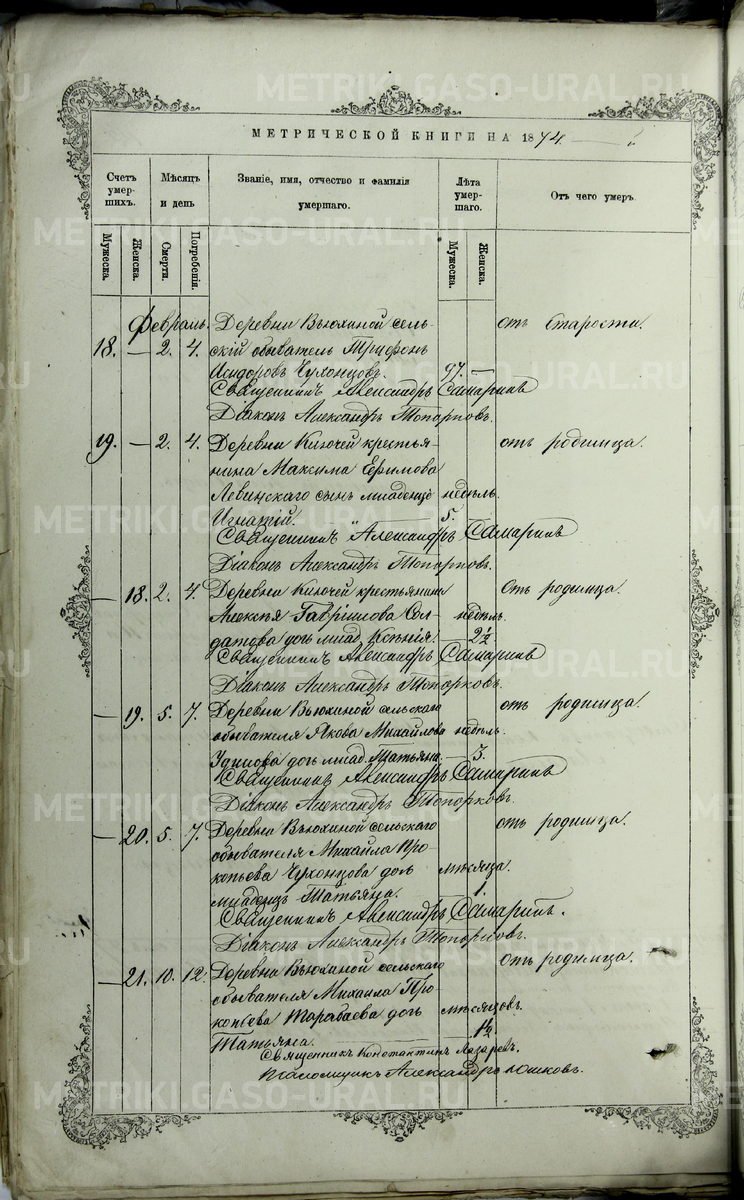 METRIKI.GASO-URAL.RU
МЕТРИЧЕСКОЙ КНИГИ НА 1874.
Счетъ умерших. Мѣсяцъ и день Званіе, имя, отчество и фамилія умершаго. Лѣта умершаго. Отъ чего умеръ.
Мужеска. Женска. Смерти. Погребенія. Мужеска. Женска.
Февраль. Деревни Вьюхиной сель- отъ старости.
18. — 2. 4. скій обыватель Трифонъ
Исидоровъ Чухонцовъ. 97. —
Священникъ Александръ Самаринъ
Діаконъ Александръ Топорковъ.
19. — 2. 4. Деревни Ключей крестья- отъ родимца.
нина Максима Ефимова
Левинскаго сынъ младенецъ недѣль.
Игнатій. 5.
Священникъ Александръ Самаринъ
Діаконъ Александръ Топорковъ.
— 18. 2. 4. Деревни Ключей крестьянина Отъ родимца.
Алексѣя Гавріилова Сол- недѣль.
датова дочь млад. Ксенія. 2½
Священникъ Александръ Самаринъ
Діаконъ Александръ Топорковъ.
— 19. 5. 7. Деревни Вьюхиной сельскаго отъ родимца.
обывателя Якова Михайлова недѣль.
дочь млад. Татьяна. 3.
Священникъ Александръ Самаринъ
Діаконъ Александръ Топорковъ.
— 20. 5. 7. Деревни Вьюхиной сельскаго отъ родимца.
обывателя Михаила Про-
копьева Чухонцова дочь мѣсяца.
младенецъ Татьяна. 1.
Священникъ Александръ Самаринъ.
Діаконъ Александръ Топорковъ.
— 21. 10. 12. Деревни Вьюхиной сельскаго Отъ родимца.
обывателя Михаила Про-
копьева Тарабаева дочь мѣсяцовъ.
Татьяна. 1½
Священникъ Константинъ Лазаревъ.
Псаломщикъ Александръ Юшковъ.